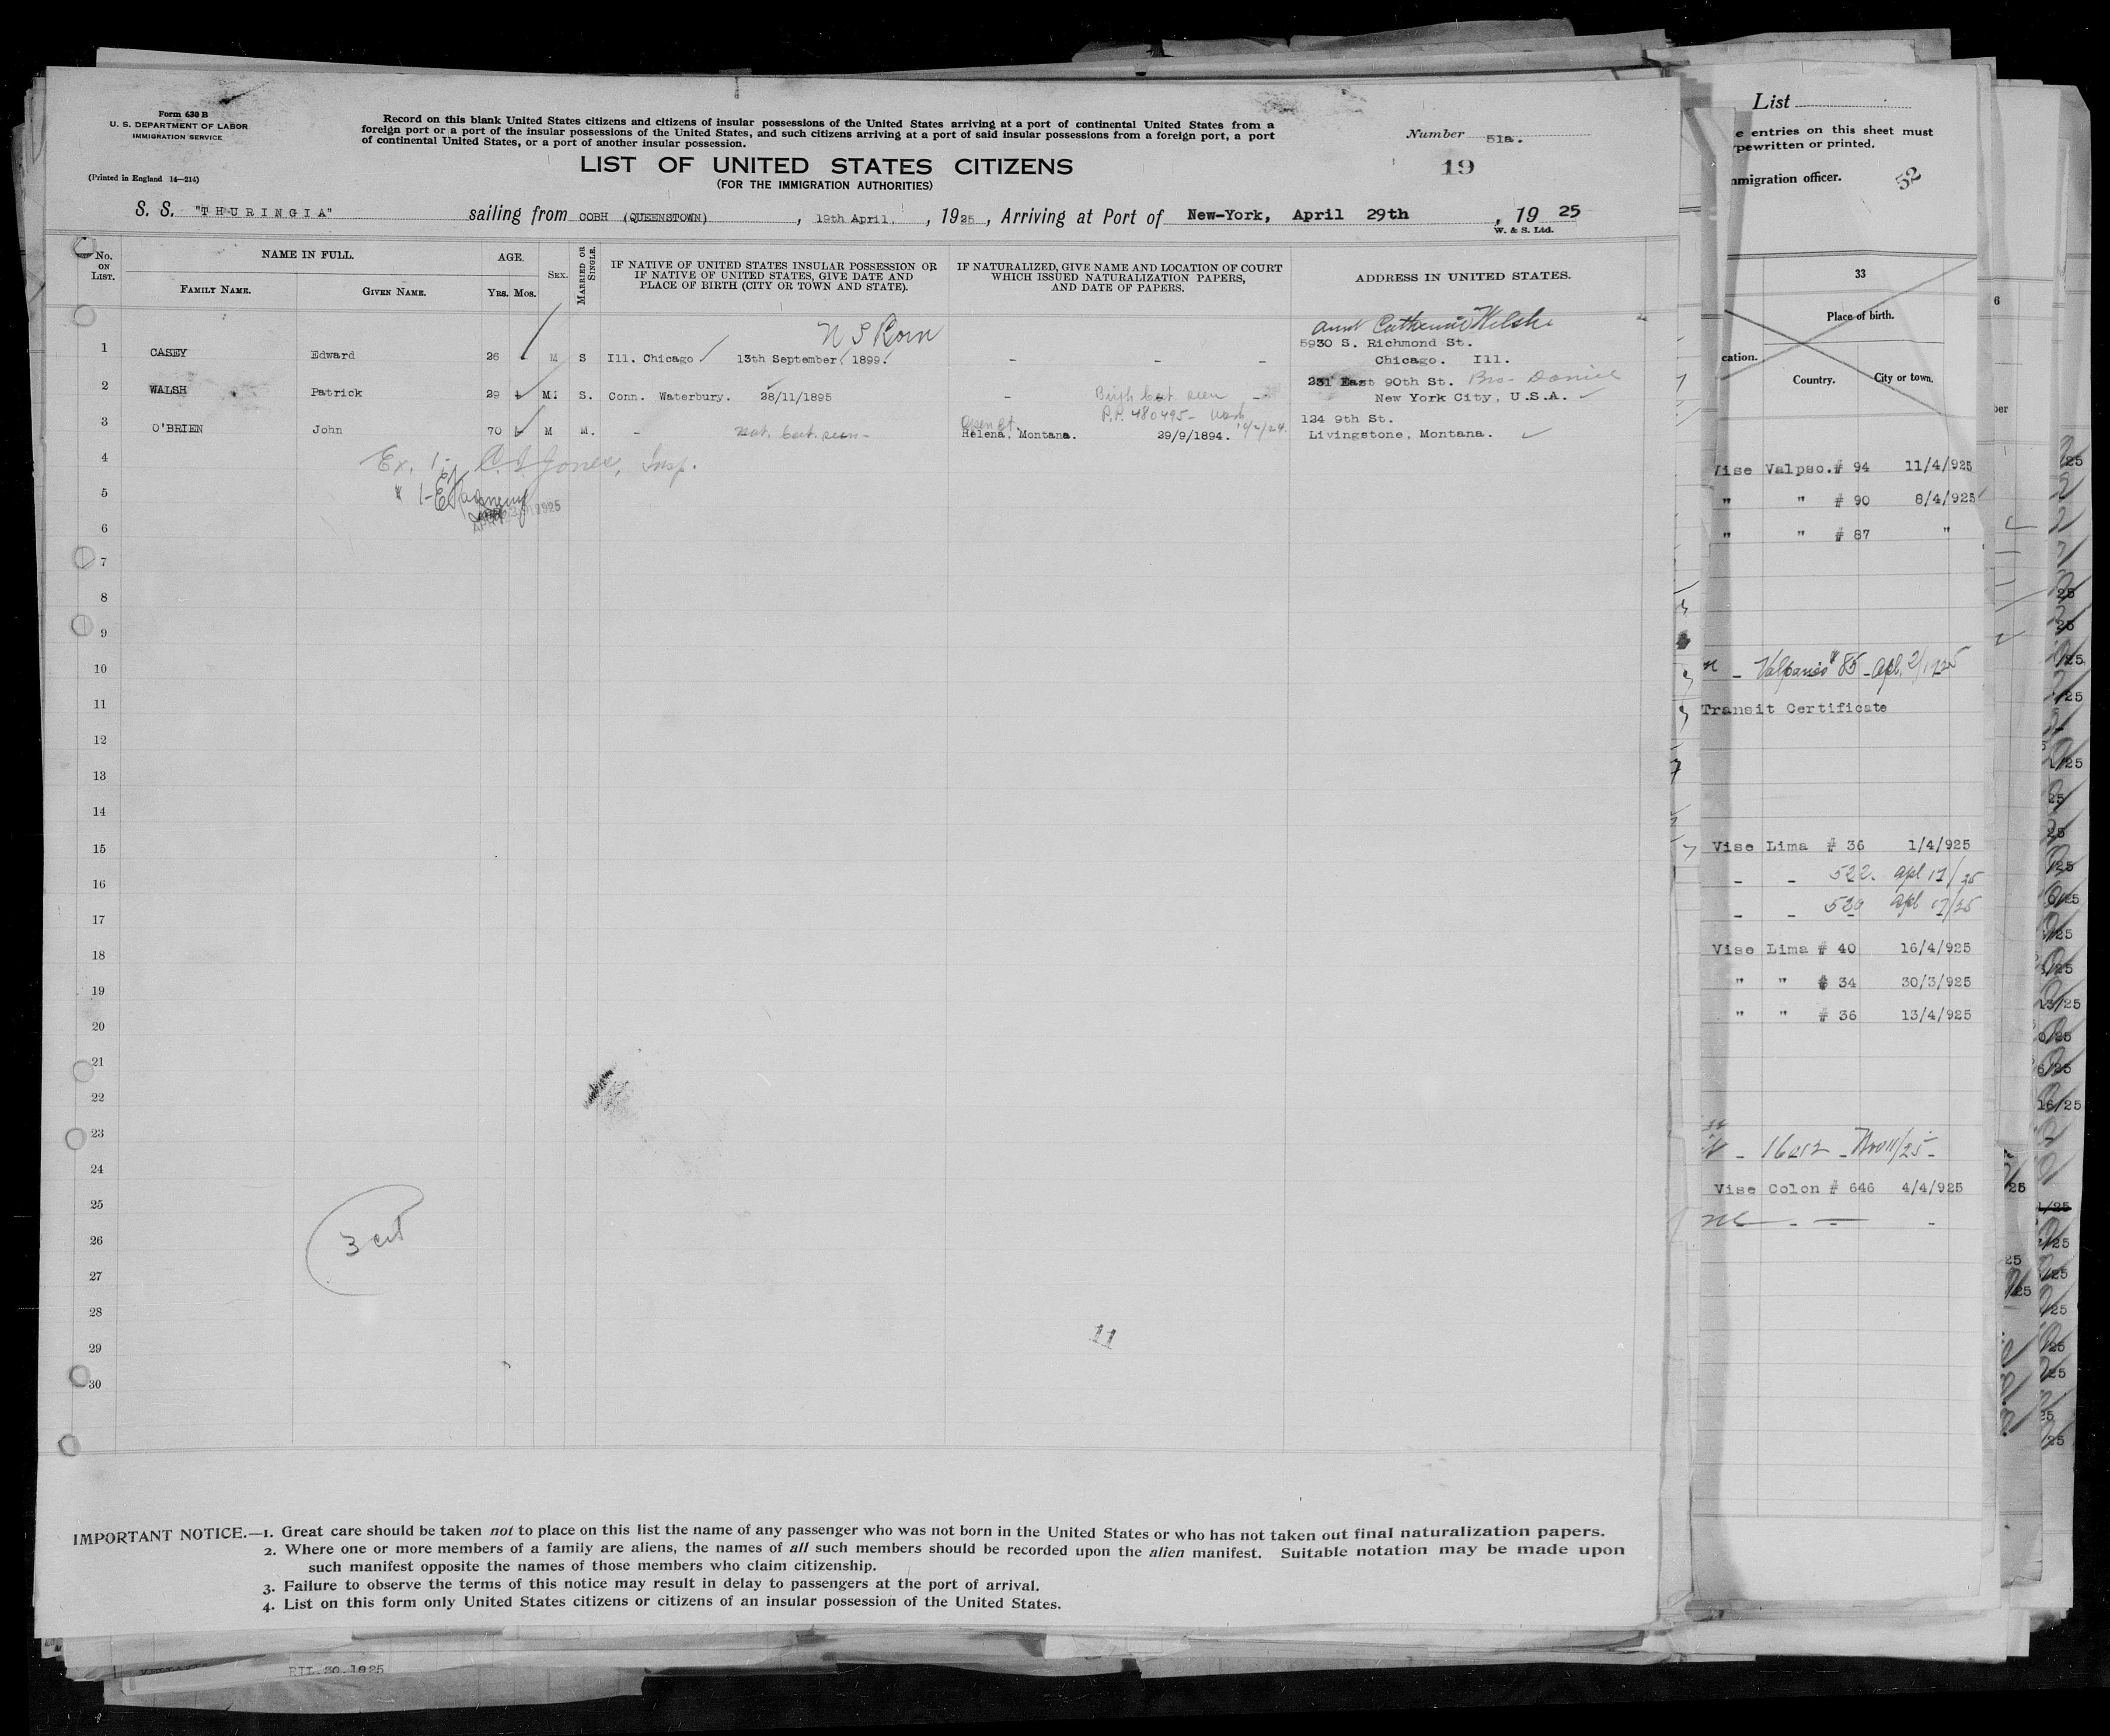 Form 630 B
U. S. DEPARTMENT OF LABOR
IMMIGRATION SERVICE
(Printed in England 14—214)
Record on this blank United States citizens and citizens of insular possessions of the United States arriving at a port of continental United States from a
foreign port or a port of the insular possessions of the United States, and such citizens arriving at a port of said insular possessions from a foreign port, a port
of continental United States, or a port of another insular possession.
Number 51a.
19
LIST OF UNITED STATES CITIZENS
(FOR THE IMMIGRATION AUTHORITIES)
S. S. "THURINGIA" sailing from COBH (QUEENSTOWN), 19th April, 1925, Arriving at Port of New-York, April 29th, 19 25
W. & S. Ltd.
No. ON LIST.
NAME IN FULL.
FAMILY NAME.
GIVEN NAME.
AGE.
YRS. MOS.
SEX.
MARRIED OR SINGLE.
IF NATIVE OF UNITED STATES INSULAR POSSESSION OR
IF NATIVE OF UNITED STATES, GIVE DATE AND
PLACE OF BIRTH (CITY OR TOWN AND STATE).
IF NATURALIZED, GIVE NAME AND LOCATION OF COURT
WHICH ISSUED NATURALIZATION PAPERS,
AND DATE OF PAPERS.
ADDRESS IN UNITED STATES.
Aunt Catherine Welsh
1 CASEY Edward 26 M S Ill. Chicago 13th September, 1899. - - - 5930 S. Richmond St.
Chicago. Ill.
2 WALSH Patrick 29 M. S. Conn. Waterbury. 28/11/1895 - Birth cert seen - 231 East 90th St. Bro- Daniel
P.P. 480495- Wash New York City, U.S.A.
3 O'BRIEN John 70 M M. - Nat. cert. seen- Helena, Montana. 29/9/1894. 124 9th St.
Livingstone, Montana.
Ex. 1- Jones, Insp.
4
5
6
7
8
9
10
11
12
13
14
15
16
17
18
19
20
21
22
23
24
25
26
27
28
29
30
11
IMPORTANT NOTICE.—1. Great care should be taken not to place on this list the name of any passenger who was not born in the United States or who has not taken out final naturalization papers.
2. Where one or more members of a family are aliens, the names of all such members should be recorded upon the alien manifest. Suitable notation may be made upon
such manifest opposite the names of those members who claim citizenship.
3. Failure to observe the terms of this notice may result in delay to passengers at the port of arrival.
4. List on this form only United States citizens or citizens of an insular possession of the United States.
List
e entries on this sheet must
pewritten or printed.
mmigration officer.
52
33
Place of birth.
cation.
Country.
City or town.
Vise Valpso.# 94 11/4/925
" " # 90 8/4/925
" " # 87 "
Transit Certificate
Vise Lima # 36 1/4/925
- - 522. Apl 17/25
- - 530 Apl 17/25
Vise Lima # 40 16/4/925
" " # 34 30/3/925
" " # 36 13/4/925
Vise Colon # 646 4/4/925
6
ber
RIL 30 1925